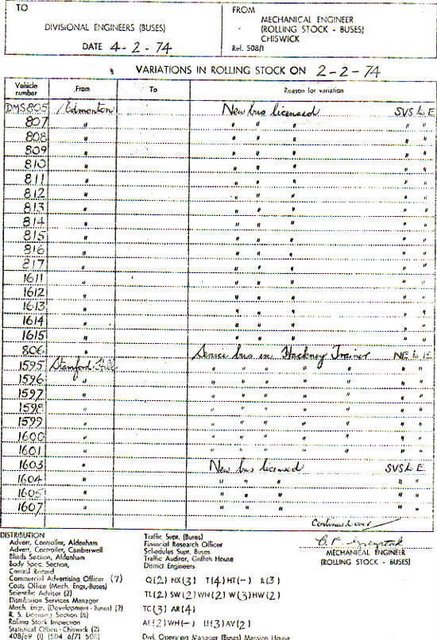 TO
DIVISIONAL ENGINEERS (BUSES)
DATE 4-2-74
FROM
MECHANICAL ENGINEER
(ROLLING STOCK - BUSES)
CHISWICK
Ref. 508/1
VARIATIONS IN ROLLING STOCK ON 2-2-74
Vehicle number From To Reason for variation
DMS 805 Edmonton New bus licensed SVS L.E
807 " " " " " "
808 " " " " " "
809 " " " " " "
810 " " " " " "
811 " " " " " "
812 " " " " " "
813 " " " " " "
814 " " " " " "
815 " " " " " "
816 " " " " " "
817 " " " " " "
1611 " " " " " "
1612 " " " " " "
1613 " " " " " "
1614 " " " " " "
1615 " " " " " "
806 " Service bus in Hackney Trainer NE L E
1595 Stamford Hill " " " " " " "
1596 " " " " " " " "
1597 " " " " " " " "
1598 " " " " " " " "
1599 " " " " " " " "
1600 " " " " " " " "
1601 " " " " " " " "
1603 " New bus licensed SVS L E
1604 " " " " " "
1605 " " " " " "
1607 " " " " " "
Continued over
MECHANICAL ENGINEER
(ROLLING STOCK - BUSES)
DISTRIBUTION
Advert. Controller, Aldenham
Advert. Controller, Camberwell
Blinds Section, Aldenham
Body Spec. Section,
Central Record
Commercial Advertising Officer (7)
Costs Office (Mech. Engr.-Buses)
Scientific Adviser (2)
Distribution Services Manager
Mech. Engr. (Development - Buses) (?)
R. S. Licensing Section (5)
Rolling Stock Inspection
Statistical Office - Chiswick (2)
408/69 (I) (504 8/71 50M)
Traffic Supt. (Buses)
Financial Research Officer
Schedules Supt. Buses
Traffic Auditor, Griffith House
District Engineers
Q(2) NX(3) T(4) HT(-) R(3)
TL(2) SW(2) WN(2) W(3) HW(2)
TC(3) AR(4)
AE(2) WH(-) U(3) AV(2)
Divl. Operating Manager (Buses) Mansion House